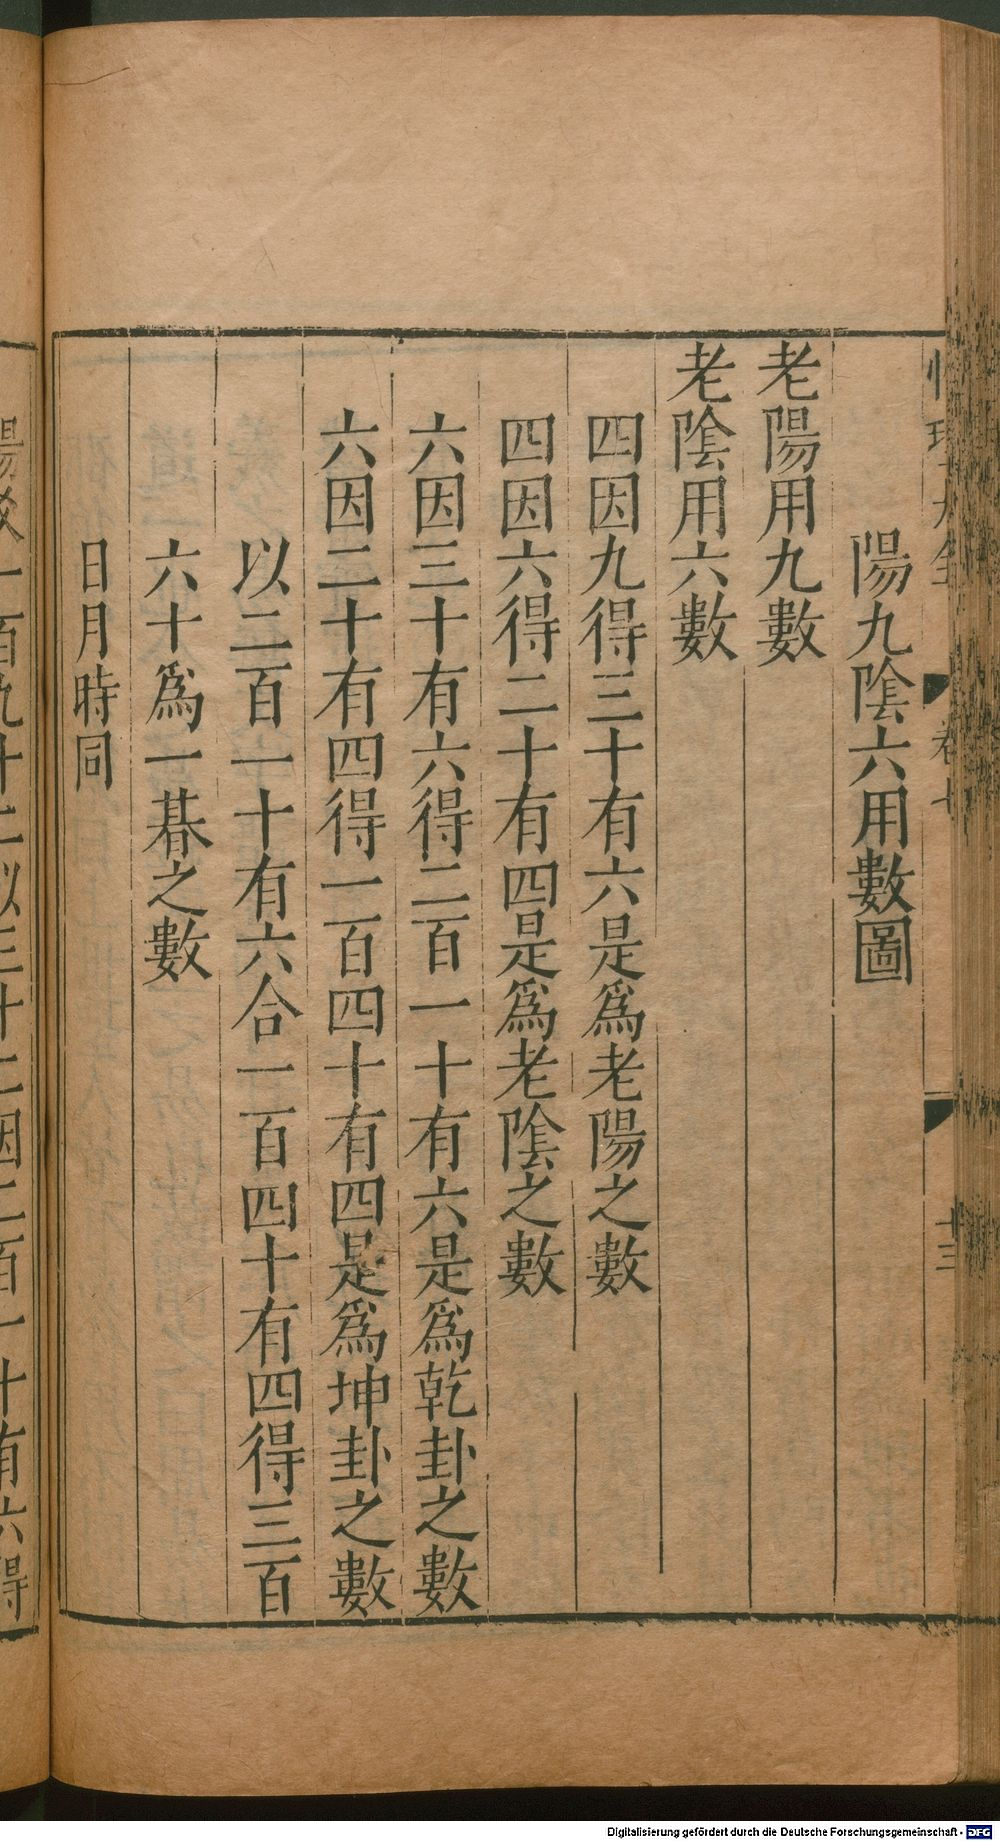 陽九陰六用數圖
老陽用九數
老陰用六數
四因九得三十有六是爲老陽之數
四因六得二十有四是爲老陰之數
六因三十有六得二百一十有六是爲乾卦之數
六因二十有四得一百四十有四是爲坤卦之數
以二百一十有六合一百四十有四得三百
六十爲一朞之數
日月時同
一百九十二以三十二因二百一十有六得
Digitalisierung gefördert durch die Deutsche Forschungsgemeinschaft - DFG